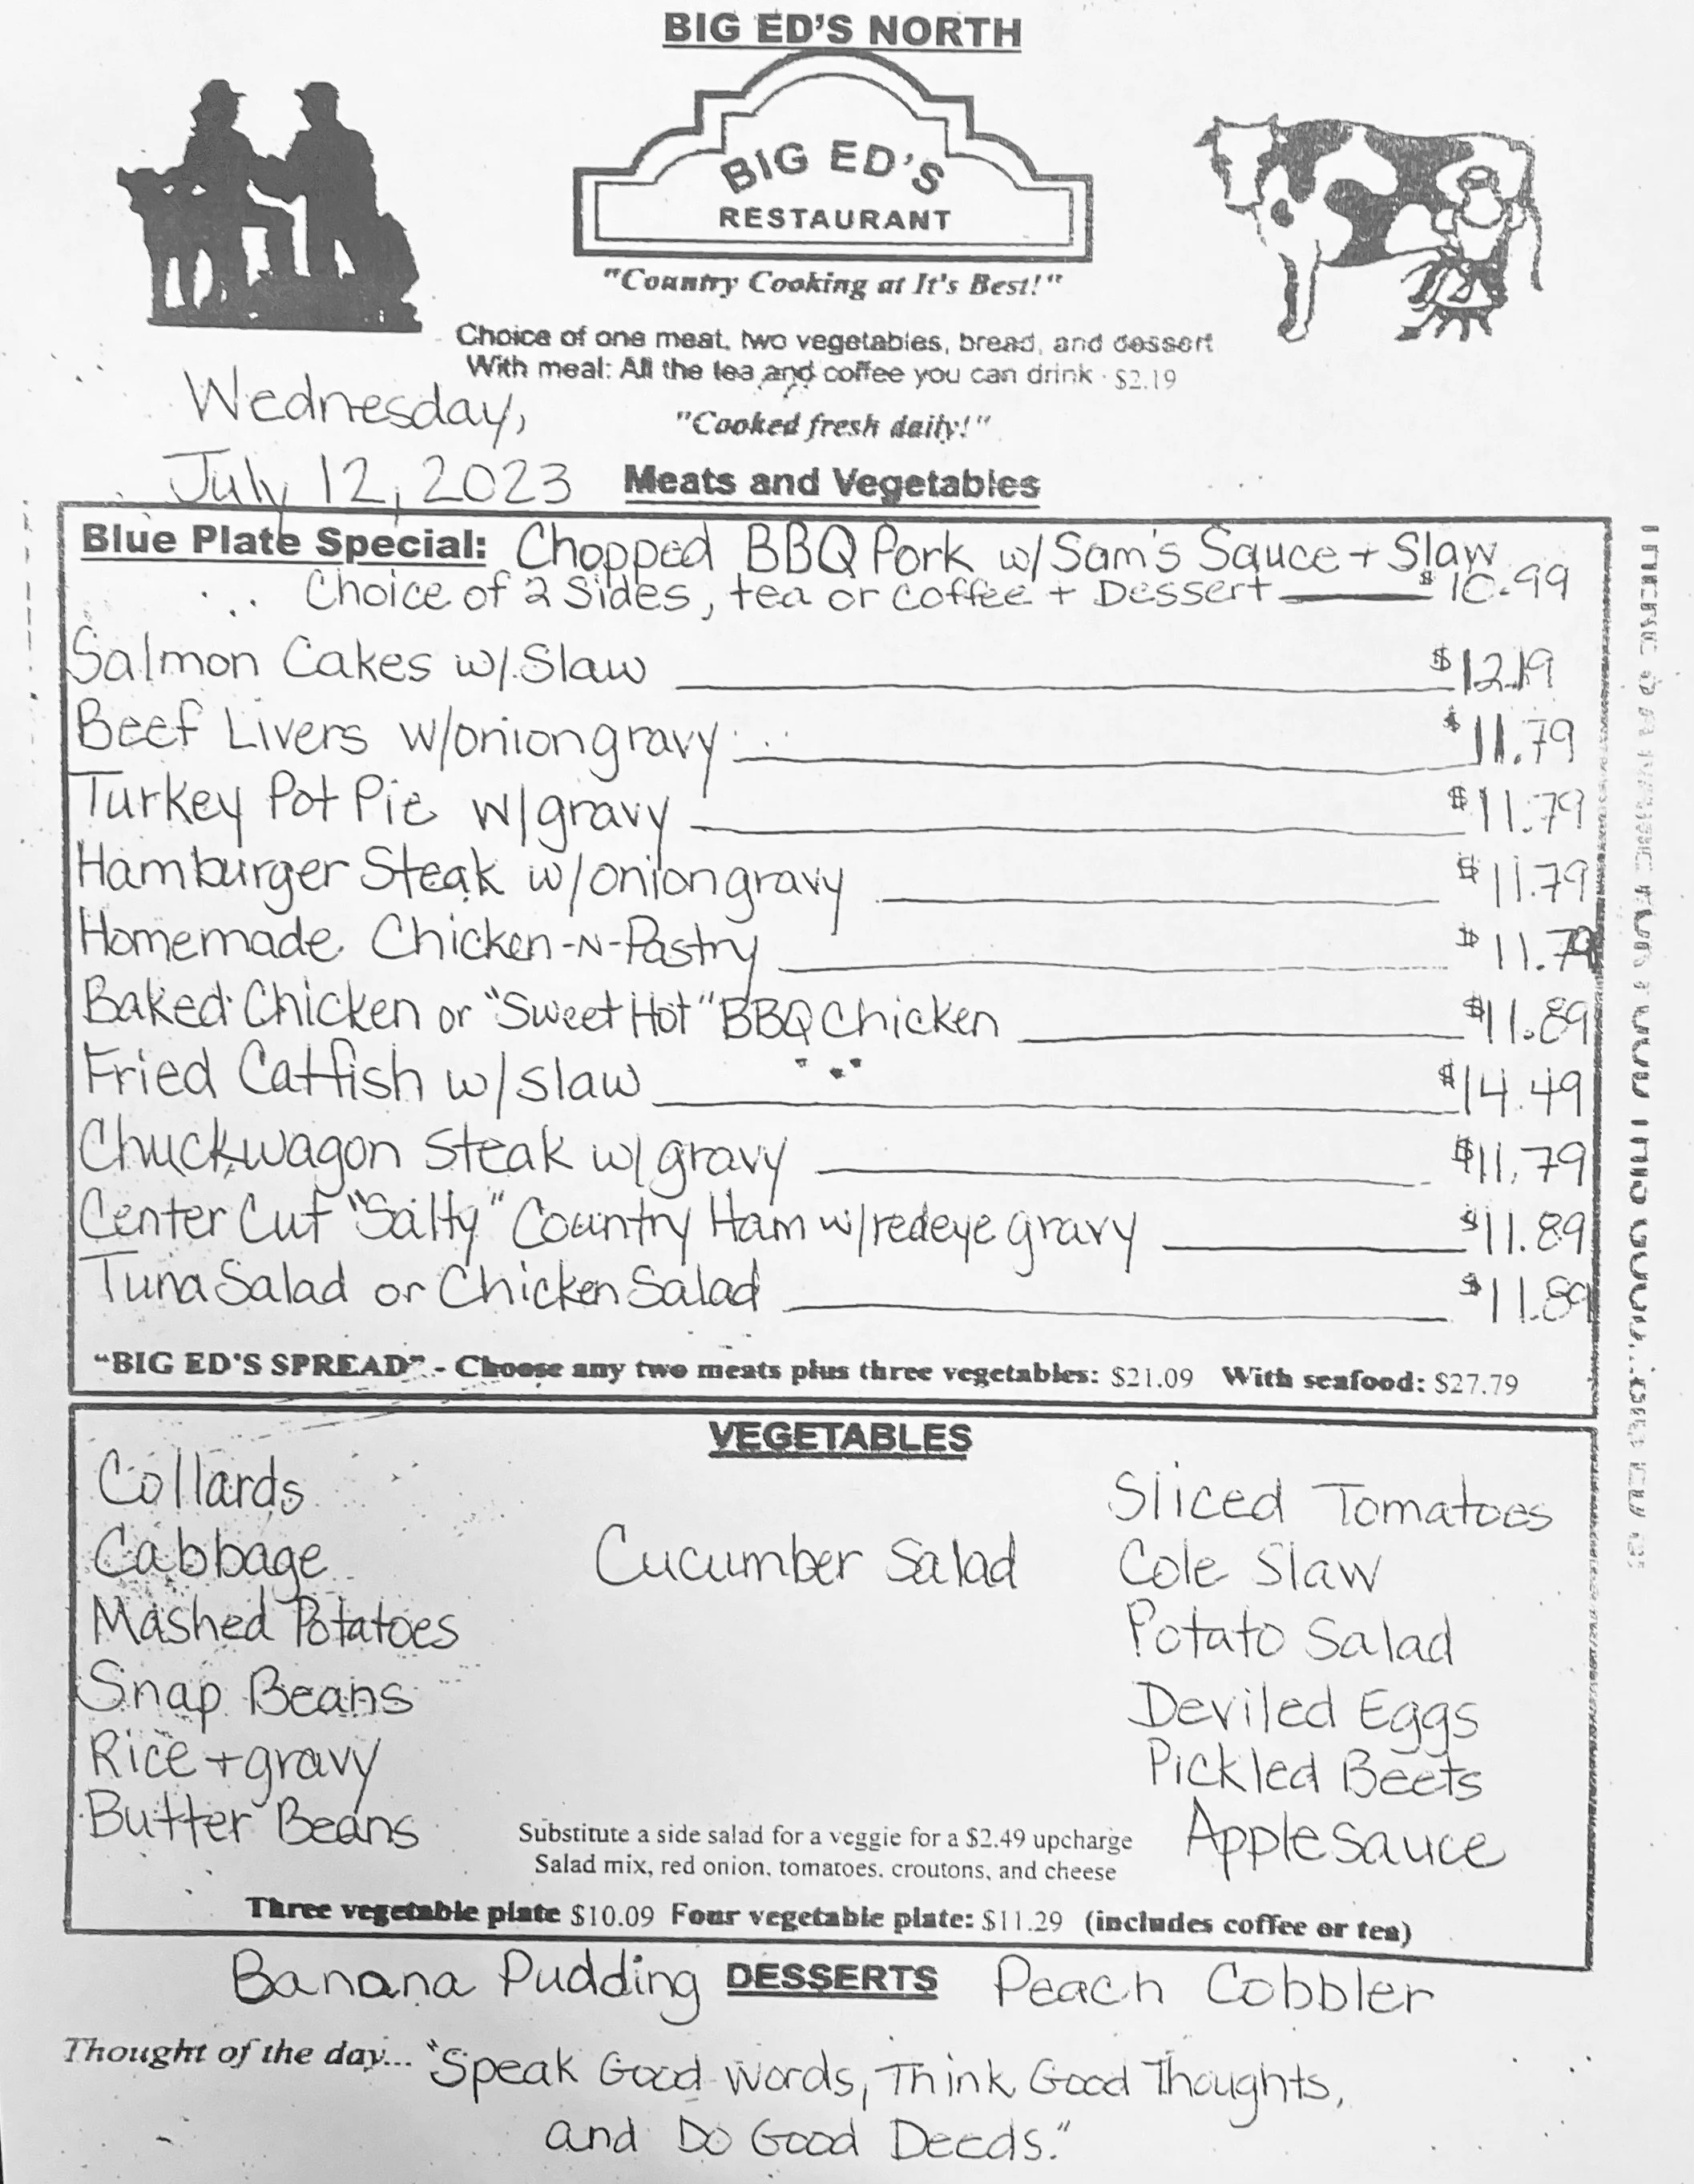 BIG ED'S NORTH
BIG ED'S
RESTAURANT
"Country Cooking at It's Best!"
Choice of one meat, two vegetables, bread, and dessert
With meal: All the tea and coffee you can drink - $2.19
Wednesday,
"Cooked fresh daily!"
July 12, 2023
Meats and Vegetables
Blue Plate Special: Chopped BBQ Pork w/Sam's Sauce + Slaw
Choice of 2 Sides, tea or coffee + Dessert $10.99
Salmon Cakes w/ Slaw $12.19
Beef Livers w/onion gravy $11.79
Turkey Pot Pie w/gravy $11.79
Hamburger Steak w/onion gravy $11.79
Homemade Chicken-N-Pastry $11.79
Baked Chicken or "Sweet Hot" BBQ Chicken $11.89
Fried Catfish w/slaw $14.49
Chuckwagon Steak w/gravy $11.79
Center Cut "Salty" Country Ham w/redeye gravy $11.89
Tuna Salad or Chicken Salad $11.89
"BIG ED'S SPREAD" - Choose any two meats plus three vegetables: $21.09 With seafood: $27.79
VEGETABLES
Collards
Cabbage
Mashed Potatoes
Snap Beans
Rice + gravy
Butter Beans
Cucumber Salad
Sliced Tomatoes
Cole Slaw
Potato Salad
Deviled Eggs
Pickled Beets
Apple Sauce
Substitute a side salad for a veggie for a $2.49 upcharge
Salad mix, red onion, tomatoes, croutons, and cheese
Three vegetable plate $10.09 Four vegetable plate: $11.29 (includes coffee or tea)
Banana Pudding DESSERTS Peach Cobbler
Thought of the day... "Speak Good Words, Think Good Thoughts,
and Do Good Deeds."